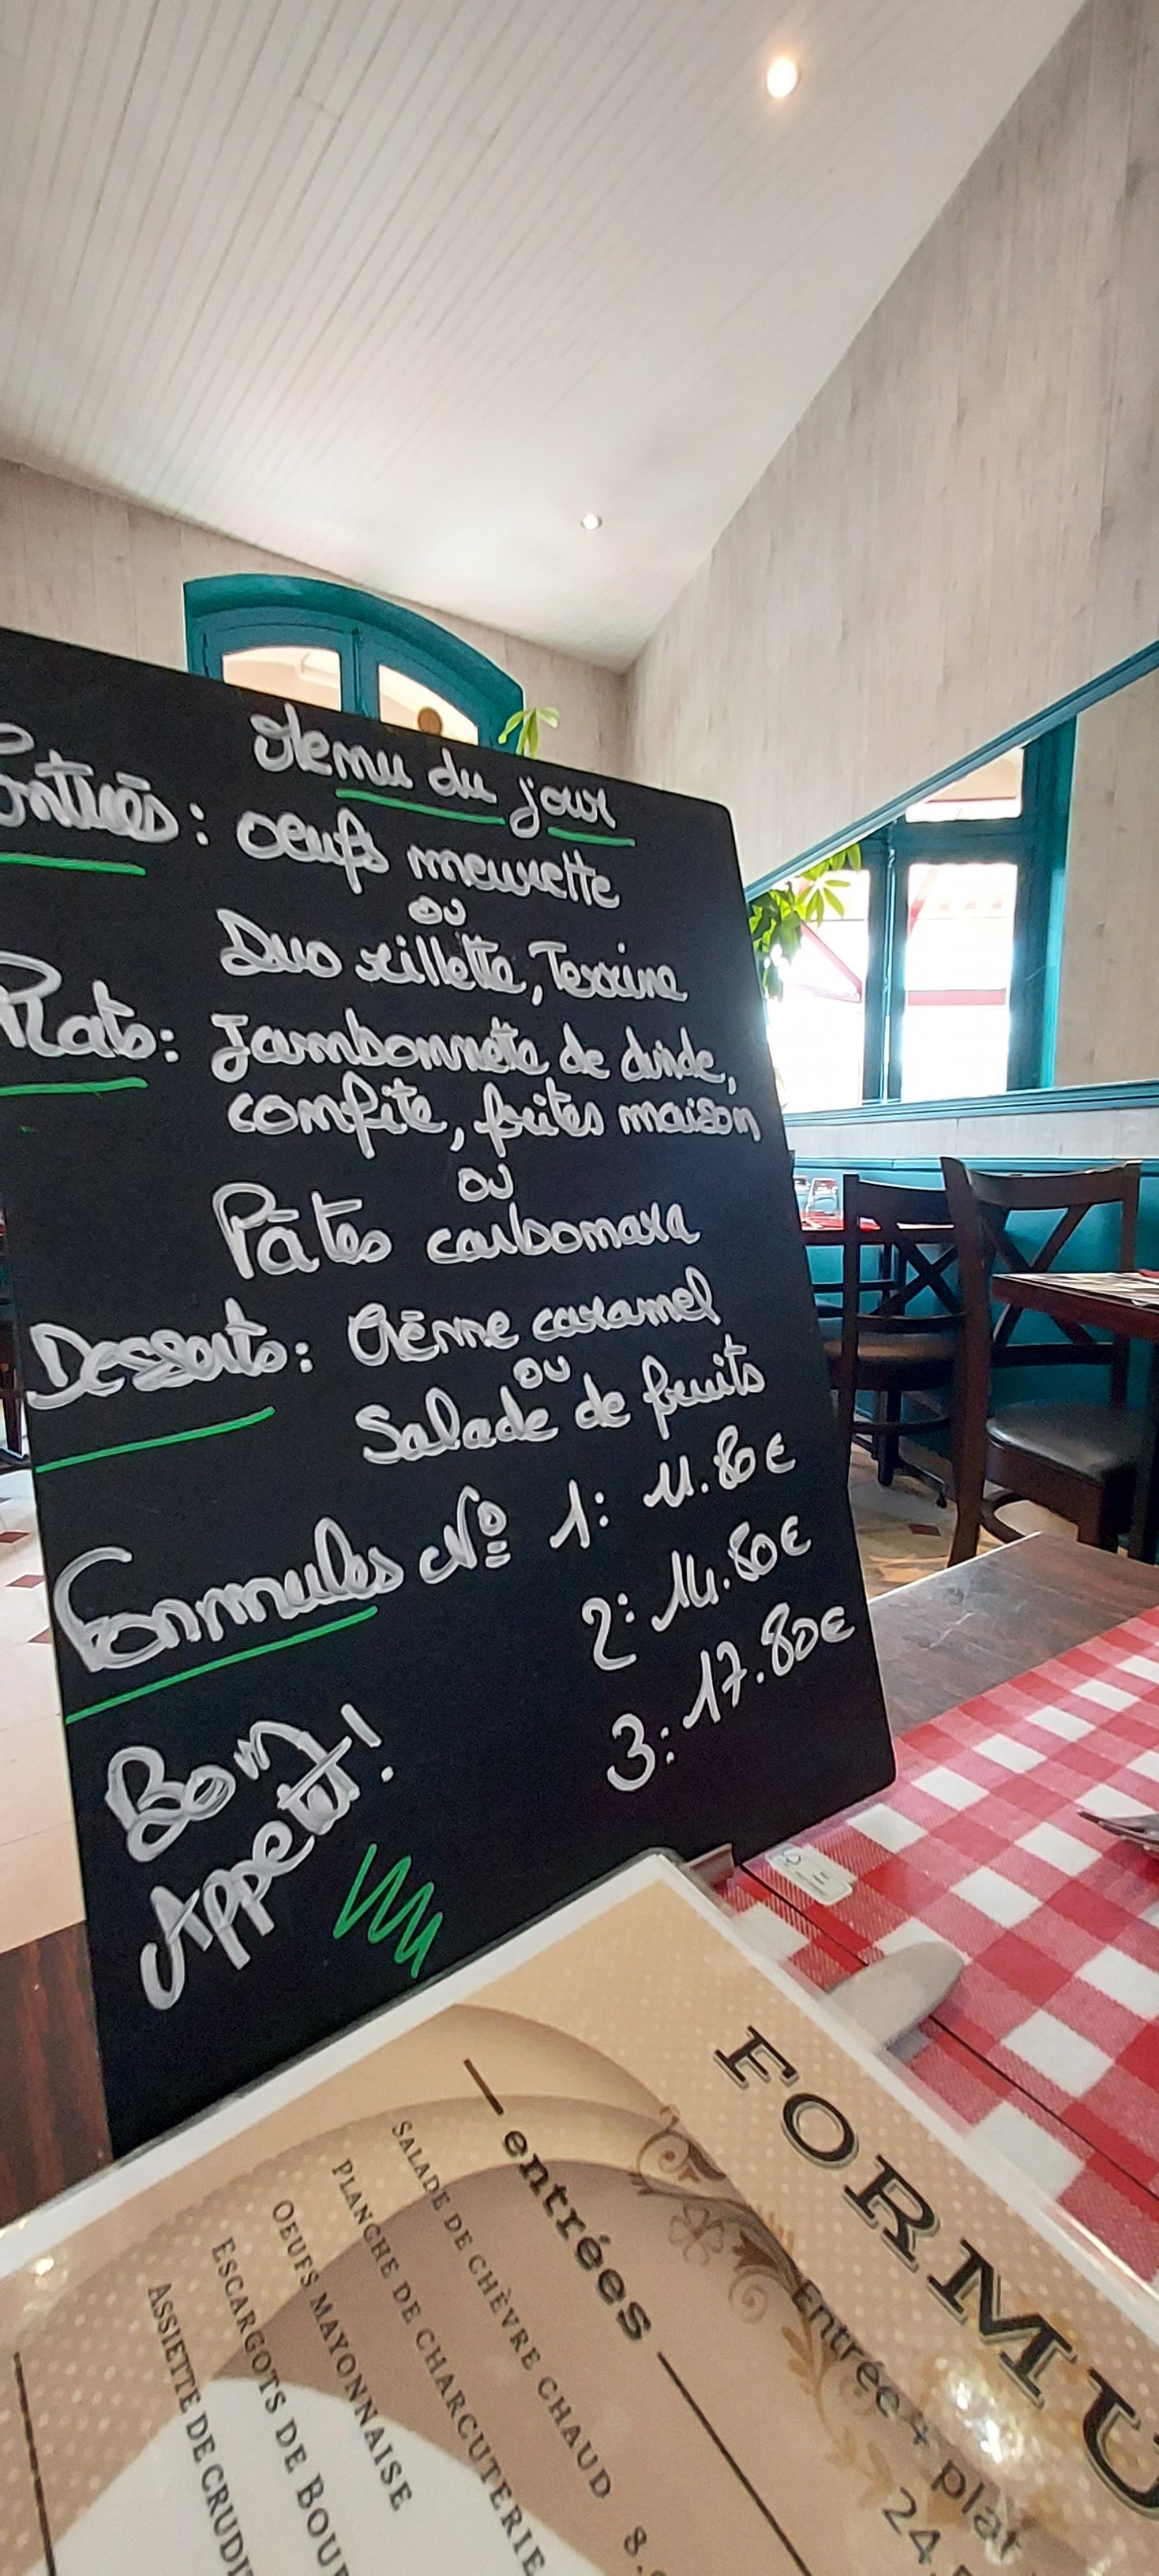 Menu du jour
Entrées: Oeufs meurette
ou
Duo rillette, Terrine
Plats: Jambonnette de dinde,
confite, frites maison
ou
Pâtes carbonara
Desserts: Crème caramel
ou
Salade de fruits
Formules Nº 1: 11.80€
2: 14.80€
3: 17.80€
Bon
Appetit!
FORMU
Entrée + plat
24
entrées
SALADE DE CHÈVRE CHAUD 8.
PLANCHE DE CHARCUTERIE
OEUFS MAYONNAISE
ESCARGOTS DE BOUR
ASSIETTE DE CRUDI